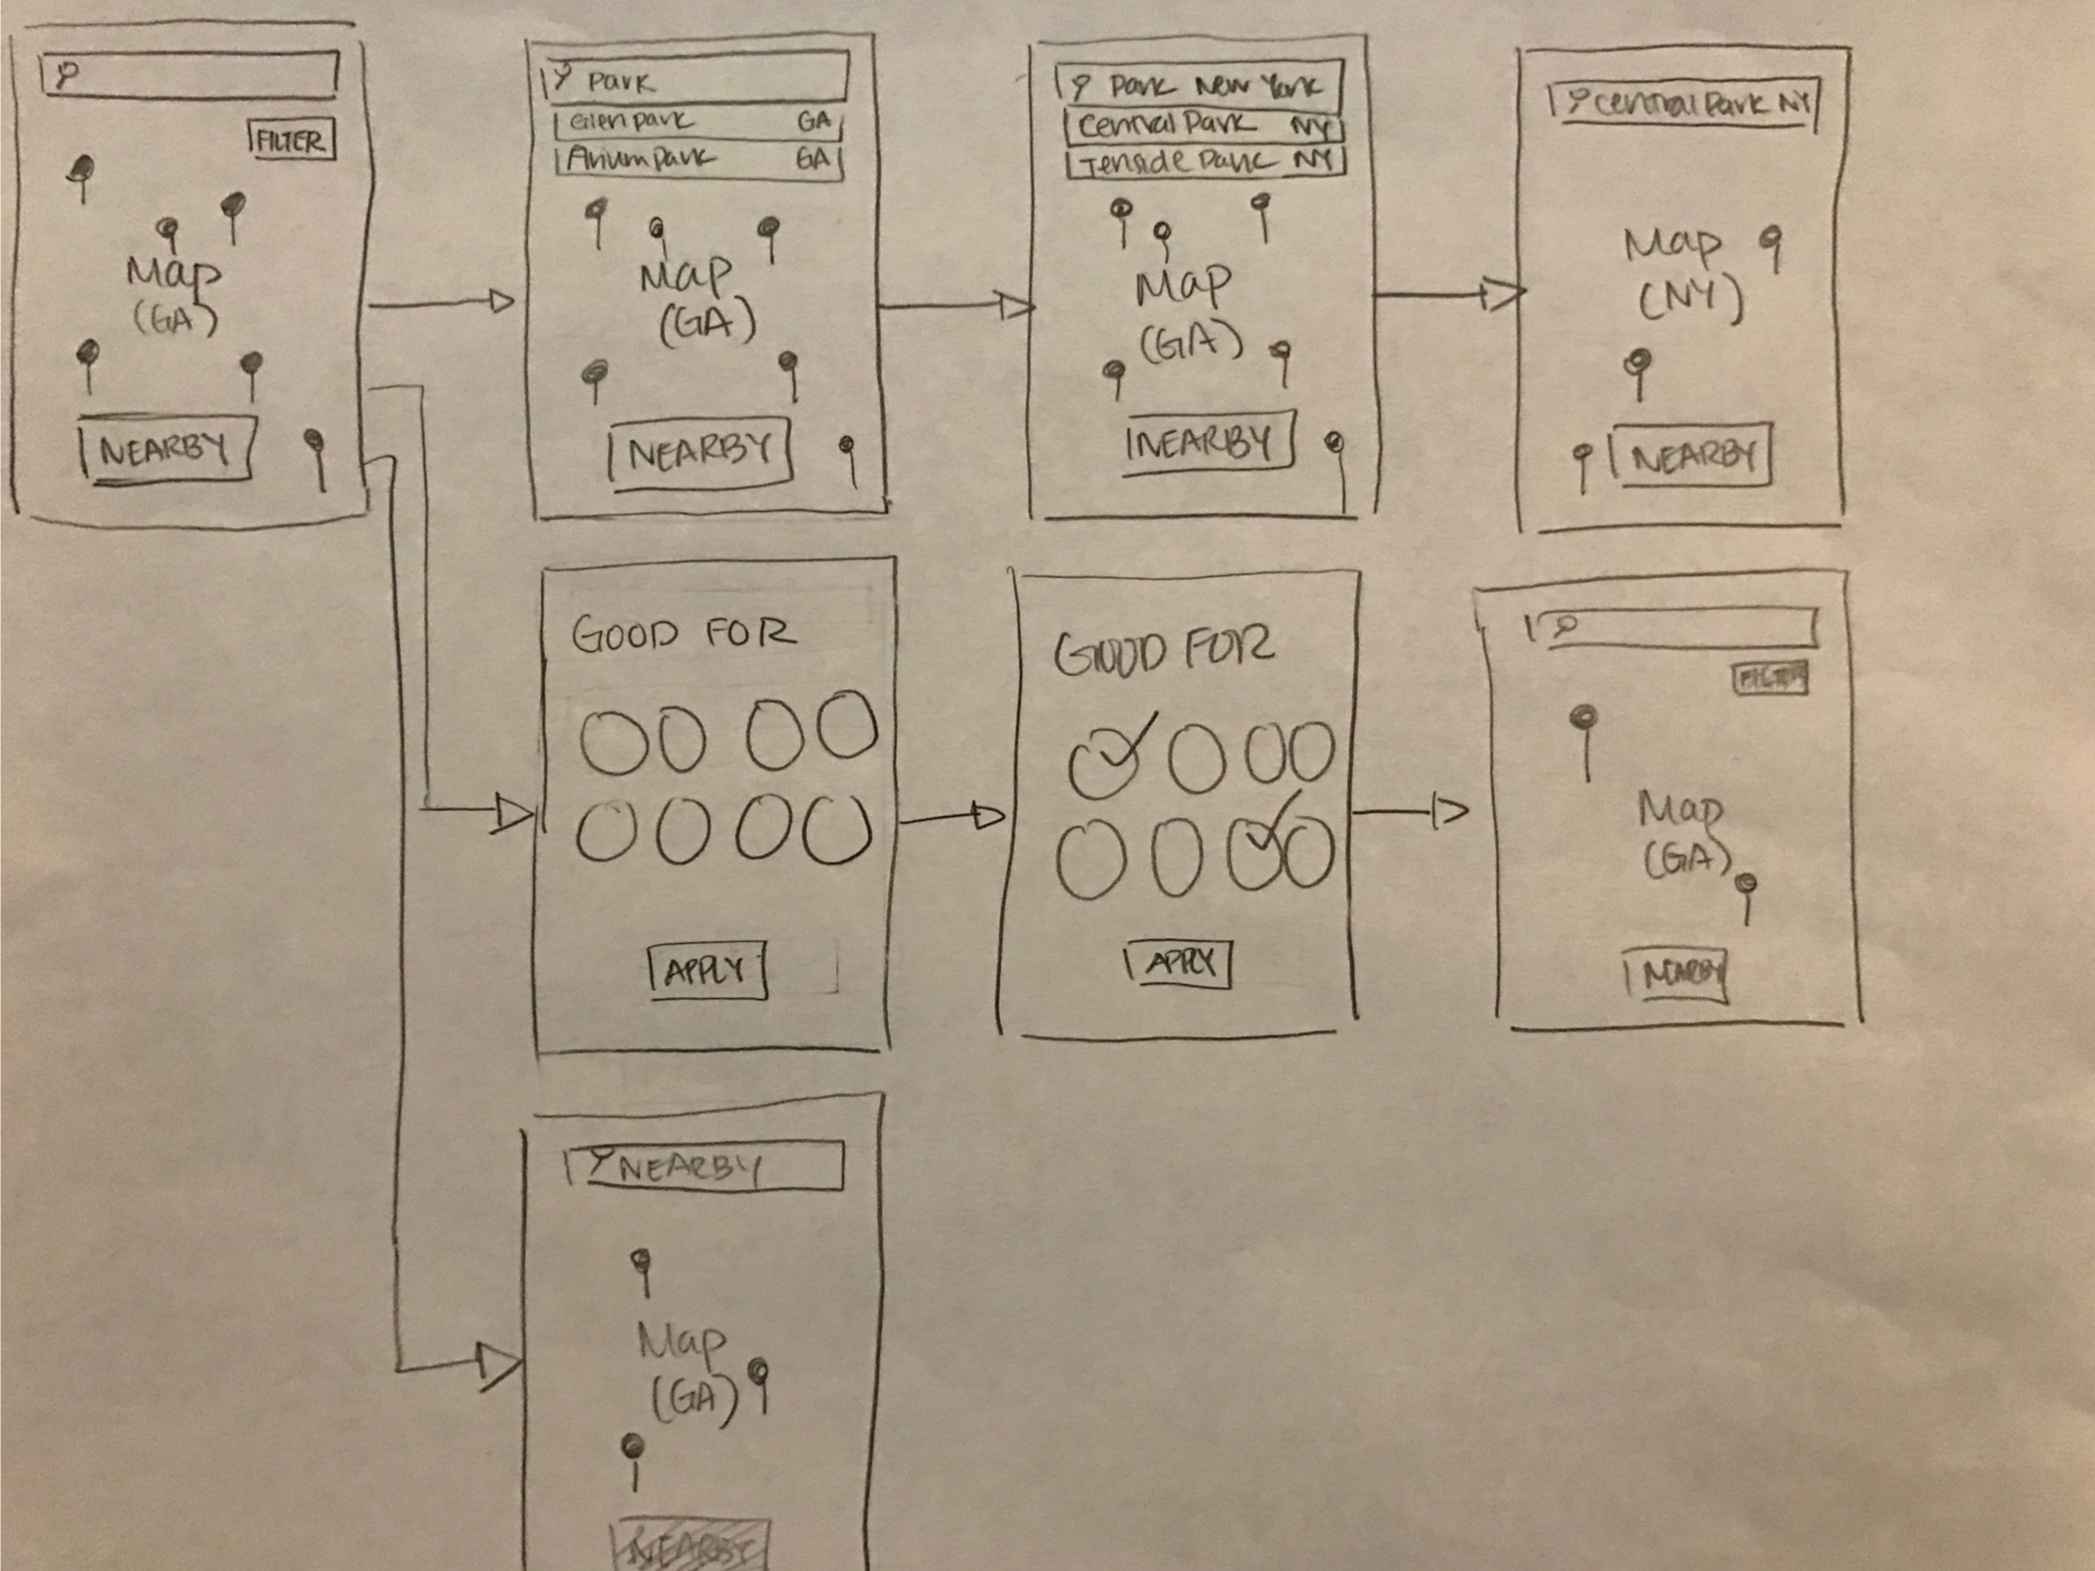 FILTER
Map
(GA)
NEARBY
Park
Glen park GA
Arium park GA
Map
(GA)
NEARBY
Park New York
Central Park NY
Park NY
Map
(GA)
NEARBY
Central Park NY
Map
(NY)
NEARBY
GOOD FOR
APPLY
GOOD FOR
APPLY
FILTER
Map
(GA)
NEARBY
NEARBY
Map
(GA)
NEARBY